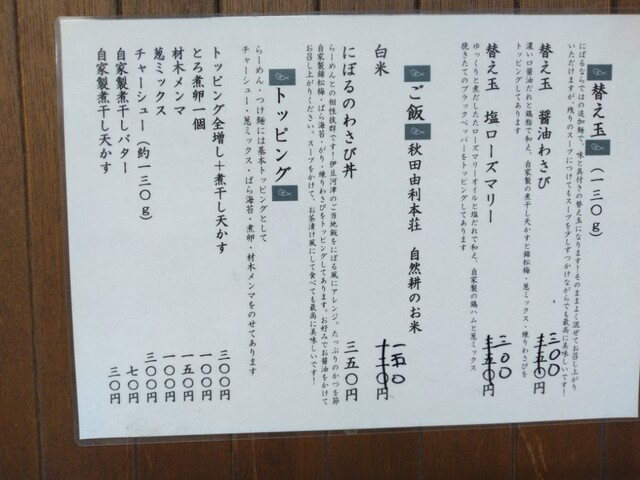 替え玉（一三〇ｇ）
にぼるならではの追加麺で、味と具付きの替え玉になります！そのままよく混ぜてお召し上がり
いただけますが、残りのスープにつけてもスープを少しずつかけながらでも最高に美味しいです！
替え玉　醤油わさび　三〇〇円
濃い口醤油だれと鶏脂で和え、自家製の煮干し天かすと錦松梅・葱ミックス・練りわさびを
トッピングしてあります
替え玉　塩ローズマリー　三〇〇円
ゆっくりと煮だしたローズマリーオイルと塩だれで和え、自家製の鶏ハムと葱ミックス
挽きたてのブラックペッパーをトッピングしてあります
ご飯　秋田由利本荘　自然耕のお米
白米　一五〇円
にぼるのわさび丼　三五〇円
らーめんとの相性抜群です！伊豆河津のご当地飯をにぼる風にアレンジ。たっぷりのかつを節
自家製錦松梅・ばら海苔・がり・練りわさびをトッピングしてあります。お好みでお醤油をかけて
お召し上がりください。スープをかけて、お茶漬け風にして食べても最高に美味しいです！
トッピング
らーめん・つけ麺には基本トッピングとして
チャーシュー・葱ミックス・ばら海苔・煮卵・材木メンマをのせてあります
トッピング全増し＋煮干し天かす　三〇〇円
とろ煮卵一個　一〇〇円
材木メンマ　一五〇円
葱ミックス　一〇〇円
チャーシュー（約一三〇ｇ）　三〇〇円
自家製煮干しバター　七〇円
自家製煮干し天かす　三〇円